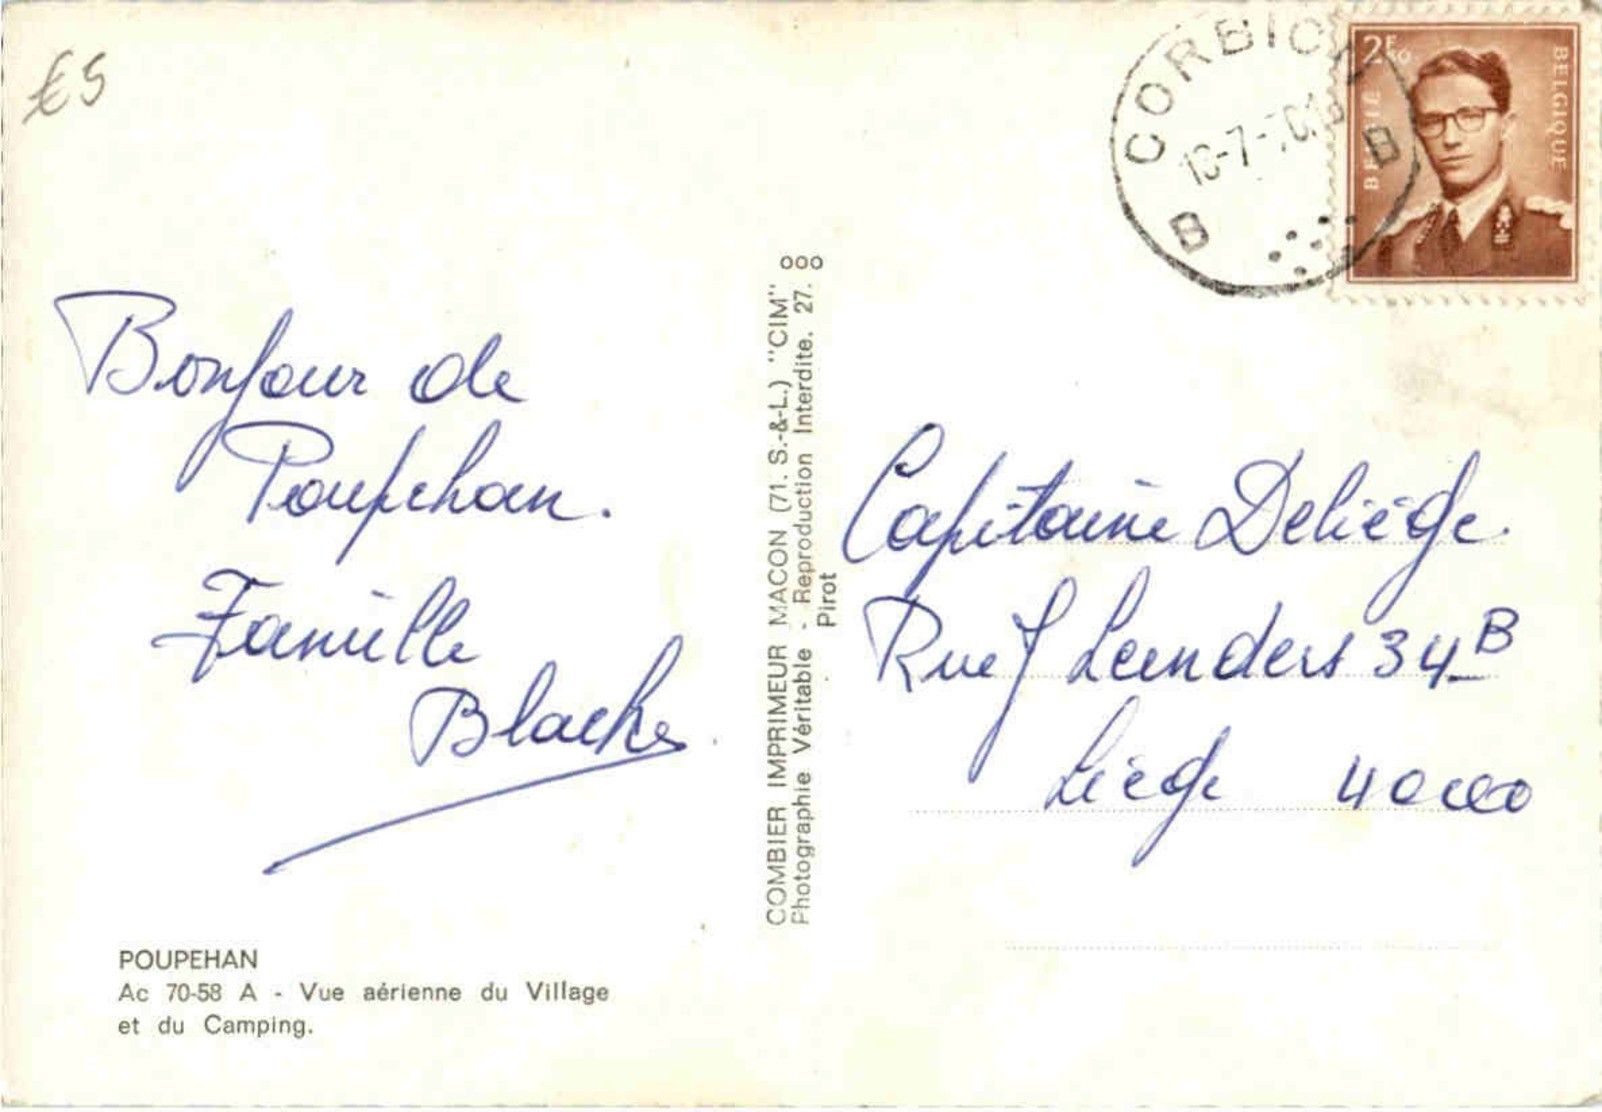 €5
Bonjour de
Poupehan.
Famille
Blacke
POUPEHAN
Ac 70-58 A - Vue aérienne du Village
et du Camping.
COMBIER IMPRIMEUR MACON (71. S.-&-L.) "CIM"
Photographie Véritable - Reproduction Interdite. 27. ooo
Pirot
CORBION
B B
2F50
BELGIË BELGIQUE
Capitaine Deliège
Rue J Leenders 34B
Liège 4000